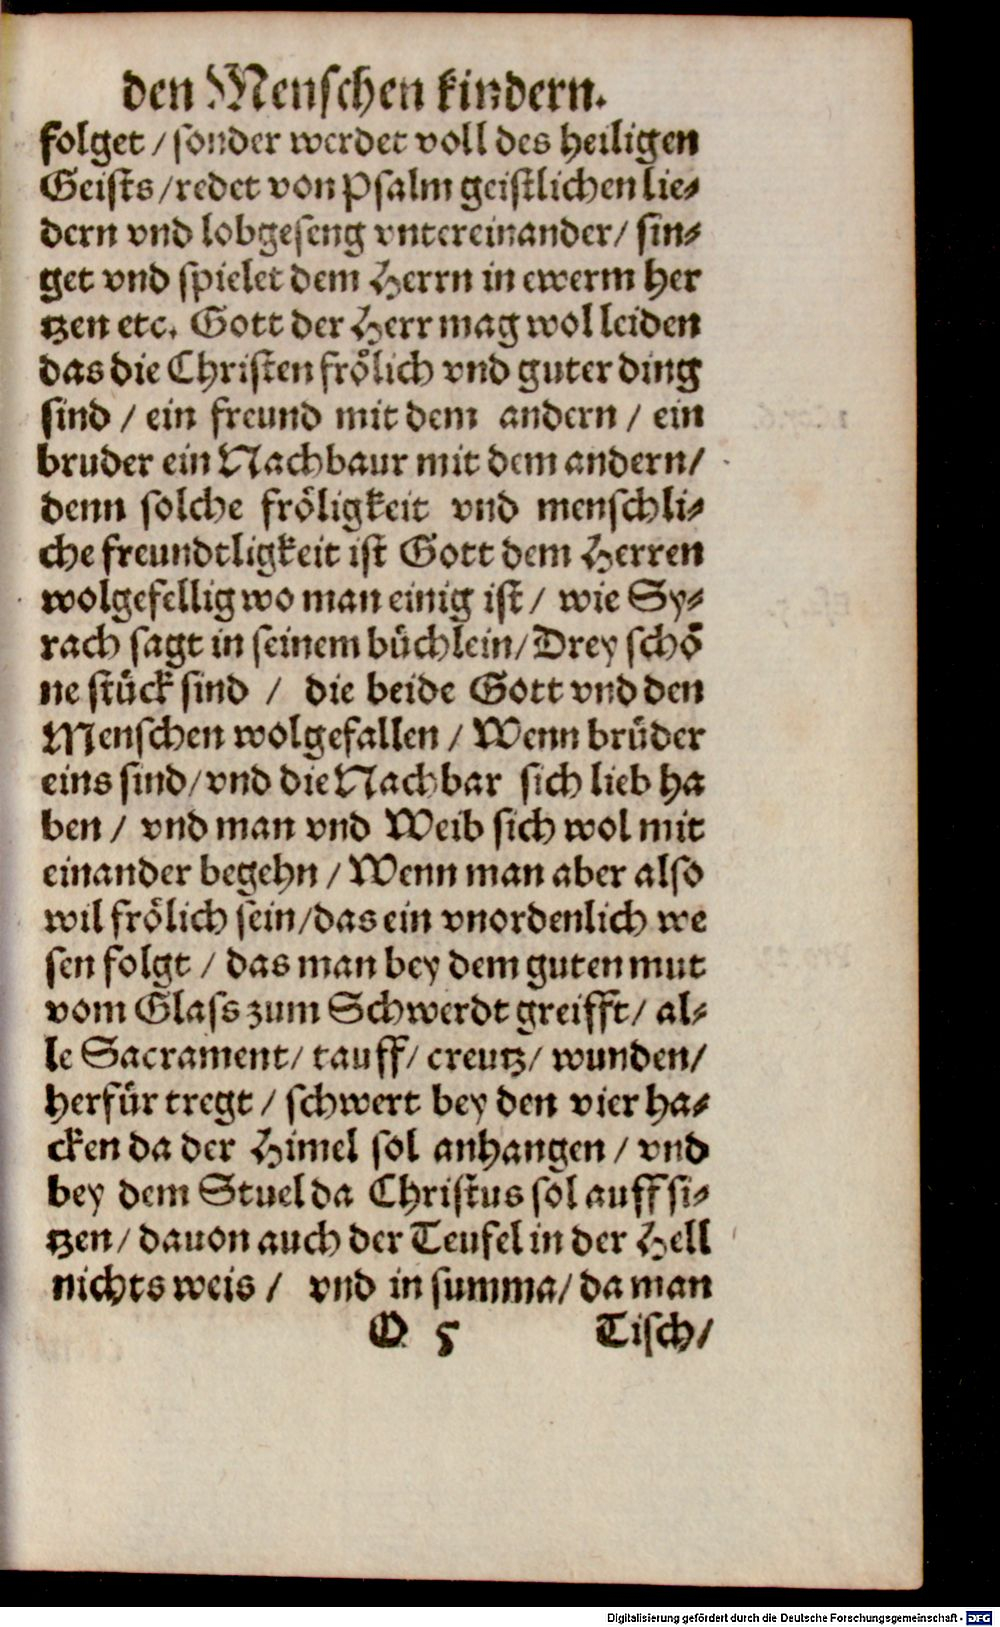 den Menschen kindern.
folget / sonder werdet voll des heiligen
Geists / redet von Psalm geistlichen lie-
dern vnd lobgeseng vntereinander / sin-
get vnd spielet dem Herrn in ewerm her
tzen etc. Gott der Herr mag wol leiden
das die Christen frölich vnd guter ding
sind / ein freund mit dem andern / ein
bruder ein Nachbaur mit dem andern /
denn solche fröligkeit vnd menschli-
che freundtligkeit ist Gott dem Herren
wolgefellig wo man einig ist / wie Sy-
rach sagt in seinem büchlein / Drey schö
ne stück sind / die beide Gott vnd den
Menschen wolgefallen / Wenn brüder
eins sind / vnd die Nachbar sich lieb ha
ben / vnd man vnd Weib sich wol mit
einander begehn / Wenn man aber also
wil frölich sein / das ein vnordenlich we
sen folgt / das man bey dem guten mut
vom Glass zum Schwerdt greifft / al-
le Sacrament / tauff / creutz / wunden /
herfür tregt / schwert bey den vier ha-
cken da der Himel sol anhangen / vnd
bey dem Stuel da Christus sol auff si-
tzen / dauon auch der Teufel in der Hell
nichts weis / vnd in summa / da man
O 5 Tisch /
Digitalisierung gefördert durch die Deutsche Forschungsgemeinschaft - DFG